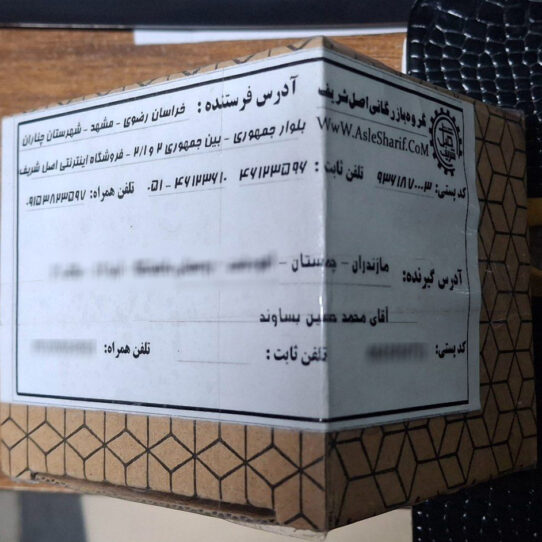 گروه بازرگانی اصل شریف
WwW.AsleSharif.CoM
اصل شریف
کد پستی: ۹۳۶۱۸۷۰۰۰۳
آدرس فرستنده : خراسان رضوی - مشهد - شهرستان چناران
بلوار جمهوری - بین جمهوری ۲ و ۲/۱ - فروشگاه اینترنتی اصل شریف
تلفن ثابت : ۴۶۱۲۳۵۹۶ ۴۶۱۲۳۶۱۰ - ۰۵۱ تلفن همراه: ۰۹۱۵۳۸۲۳۵۹۷
آدرس گیرنده: مازندران -
آقای محمد حسین بساوند
کد پستی: تلفن ثابت : تلفن همراه: